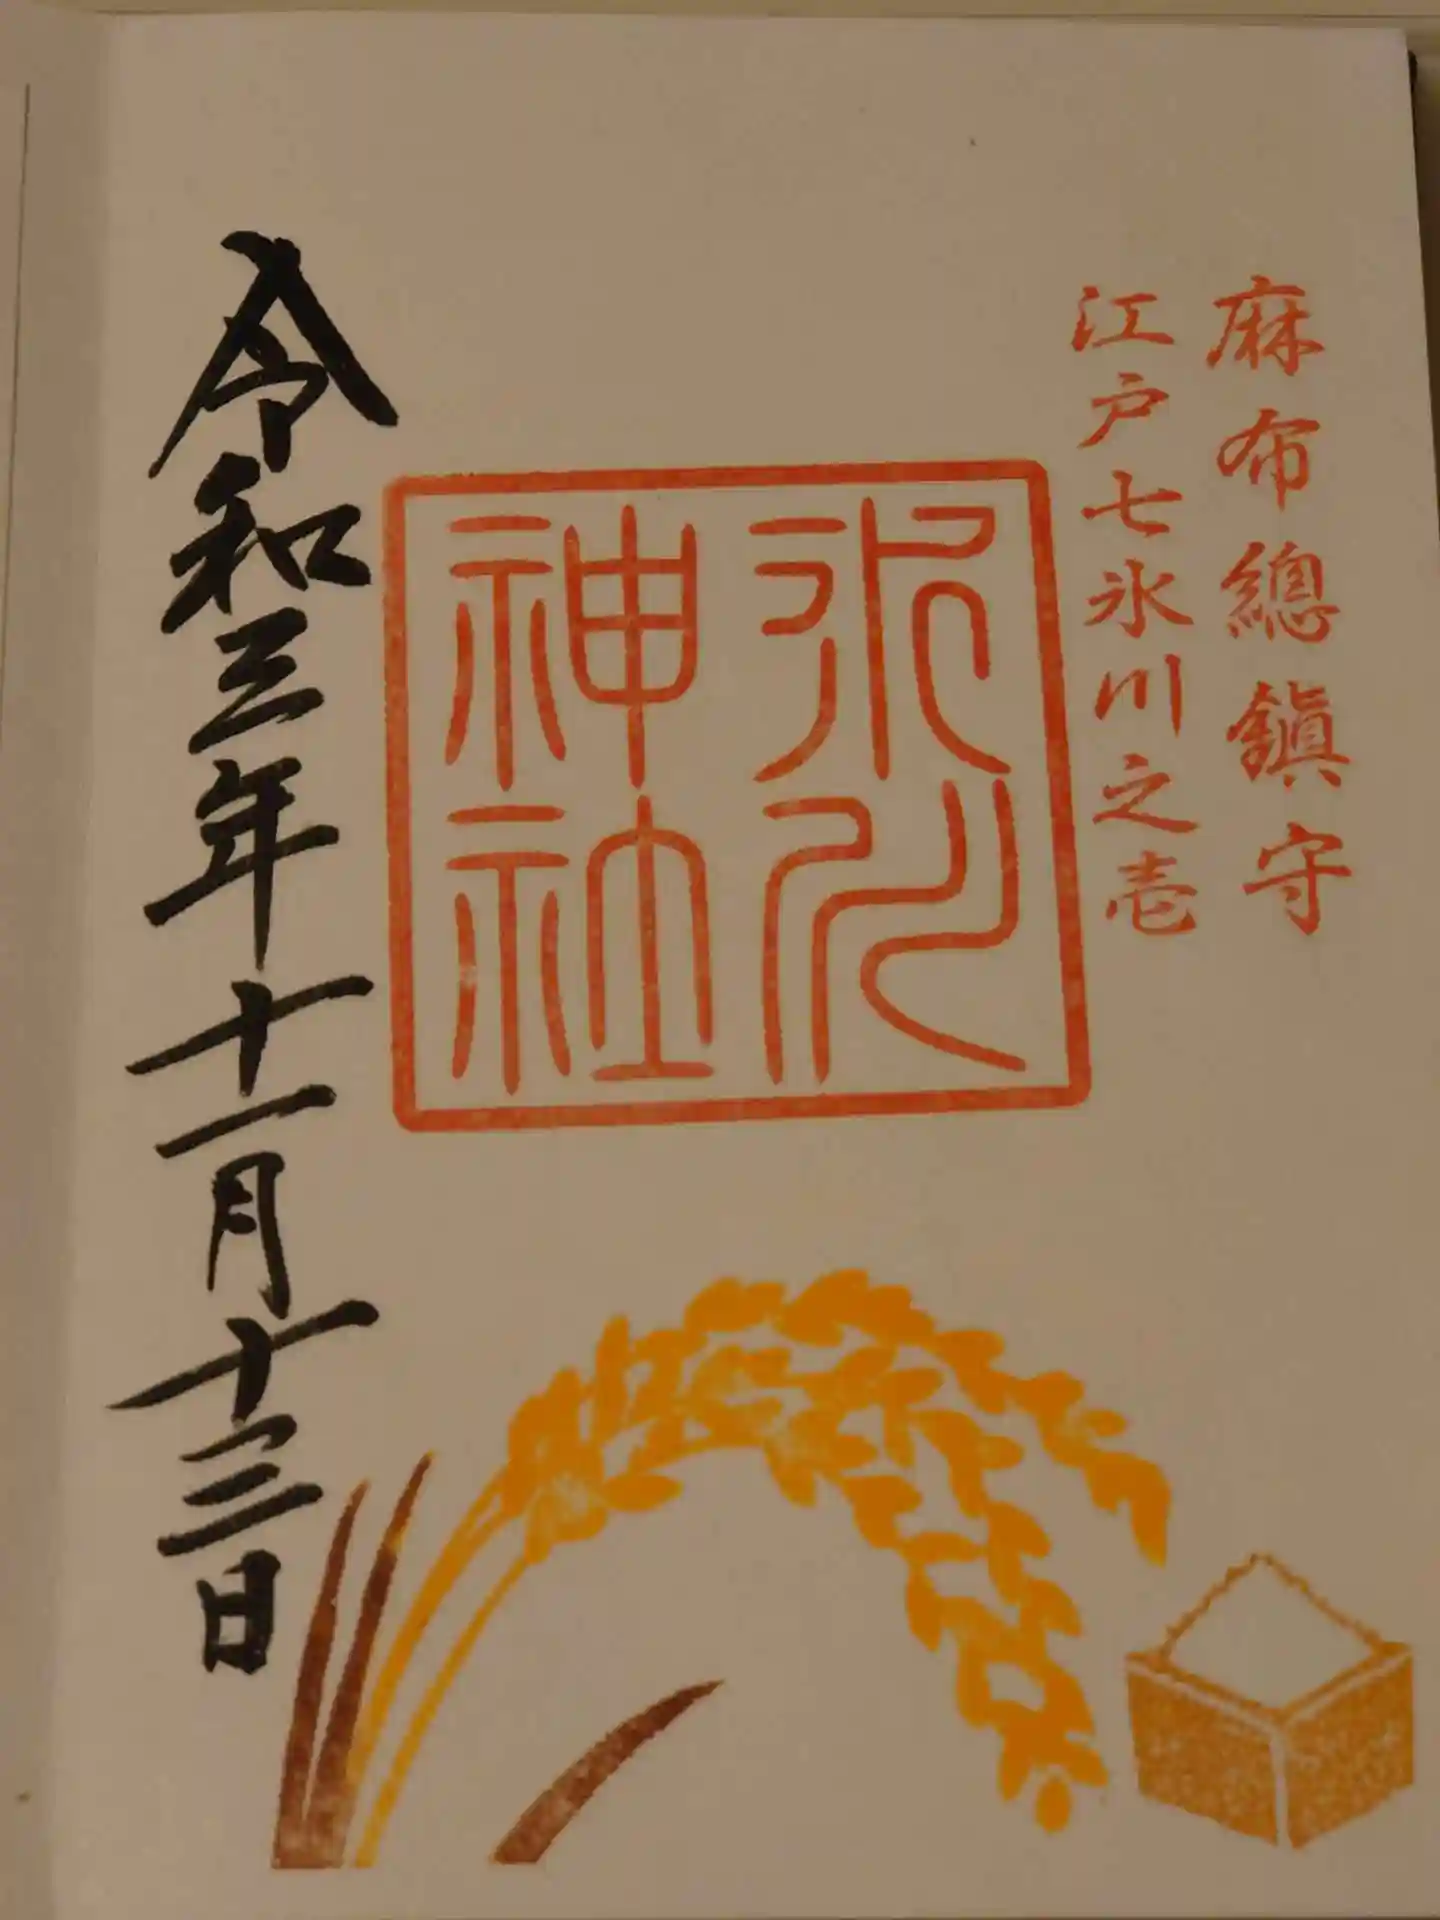 麻布總鎭守
江戸七氷川之壱
氷川
神社
令和三年十一月十三日